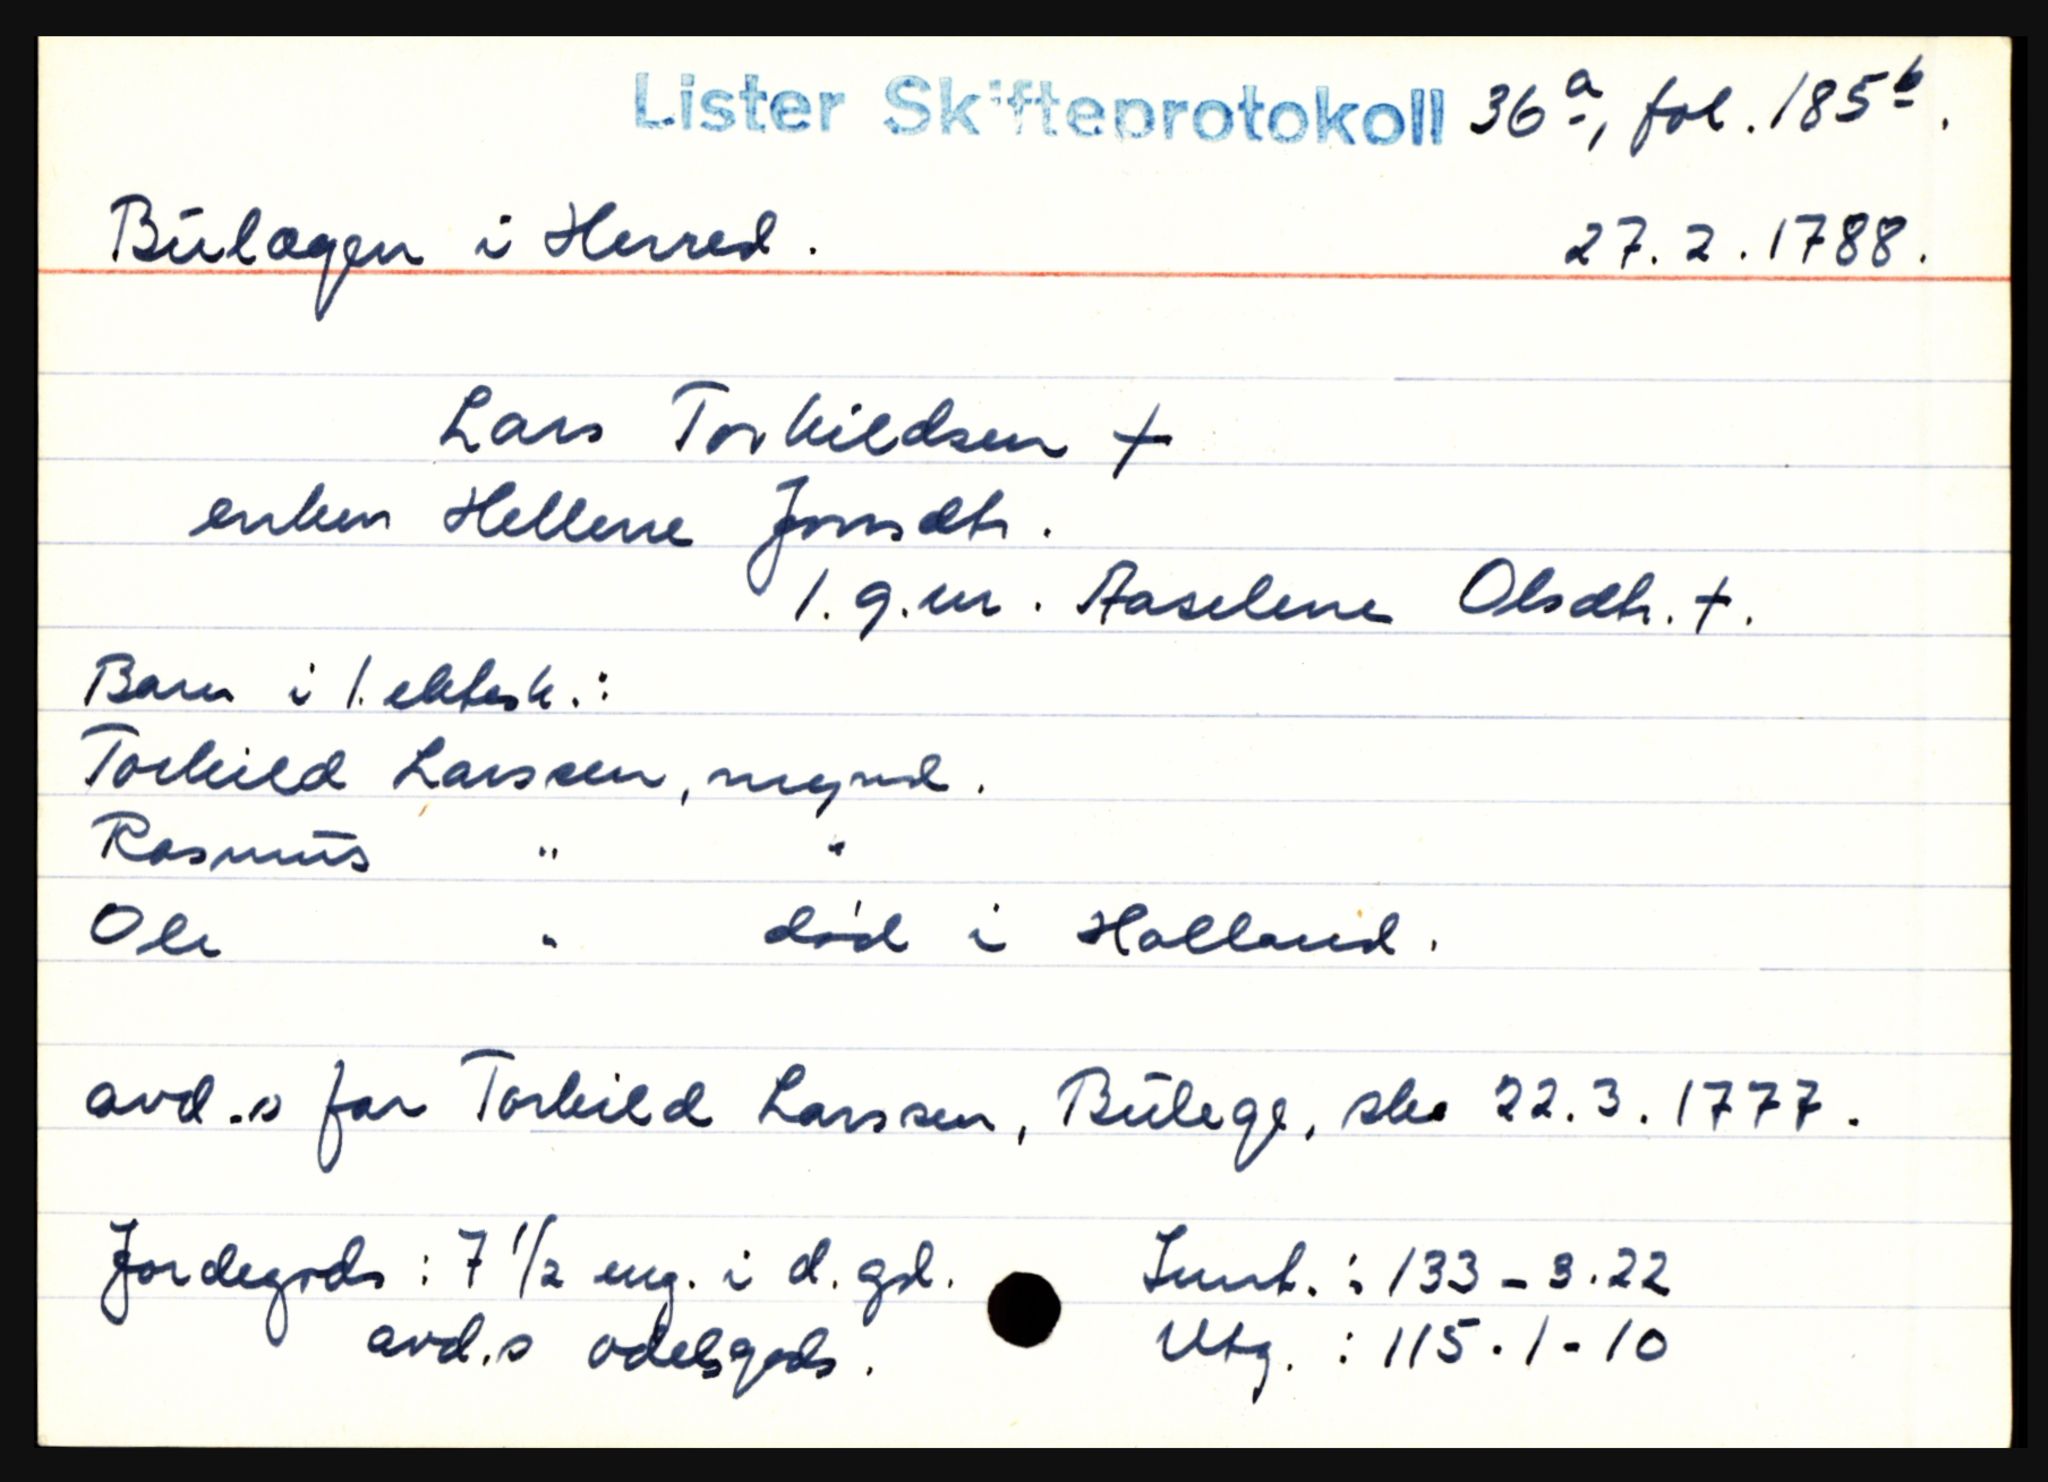 Lister Skifteprotokoll 36a, fol. 185b.
Bulægen i Herred. 27.2.1788.
Lars Torkildsen †
enken Hellene Jonsdtr.
1. g.m. Aaselene Olsdtr. †.
Barn i 1. ektesk.:
Torkild Larssen, mynd.
Rasmus " "
Ole " død i Holland.
avd.s far Torkild Larssen, Bulege, sk. 22.3.1777.
Jordegods: 7 1/2 eng. i d. gd. Innt.: 133-3.22
avd.s odelsgods. Utg.: 115.1-10